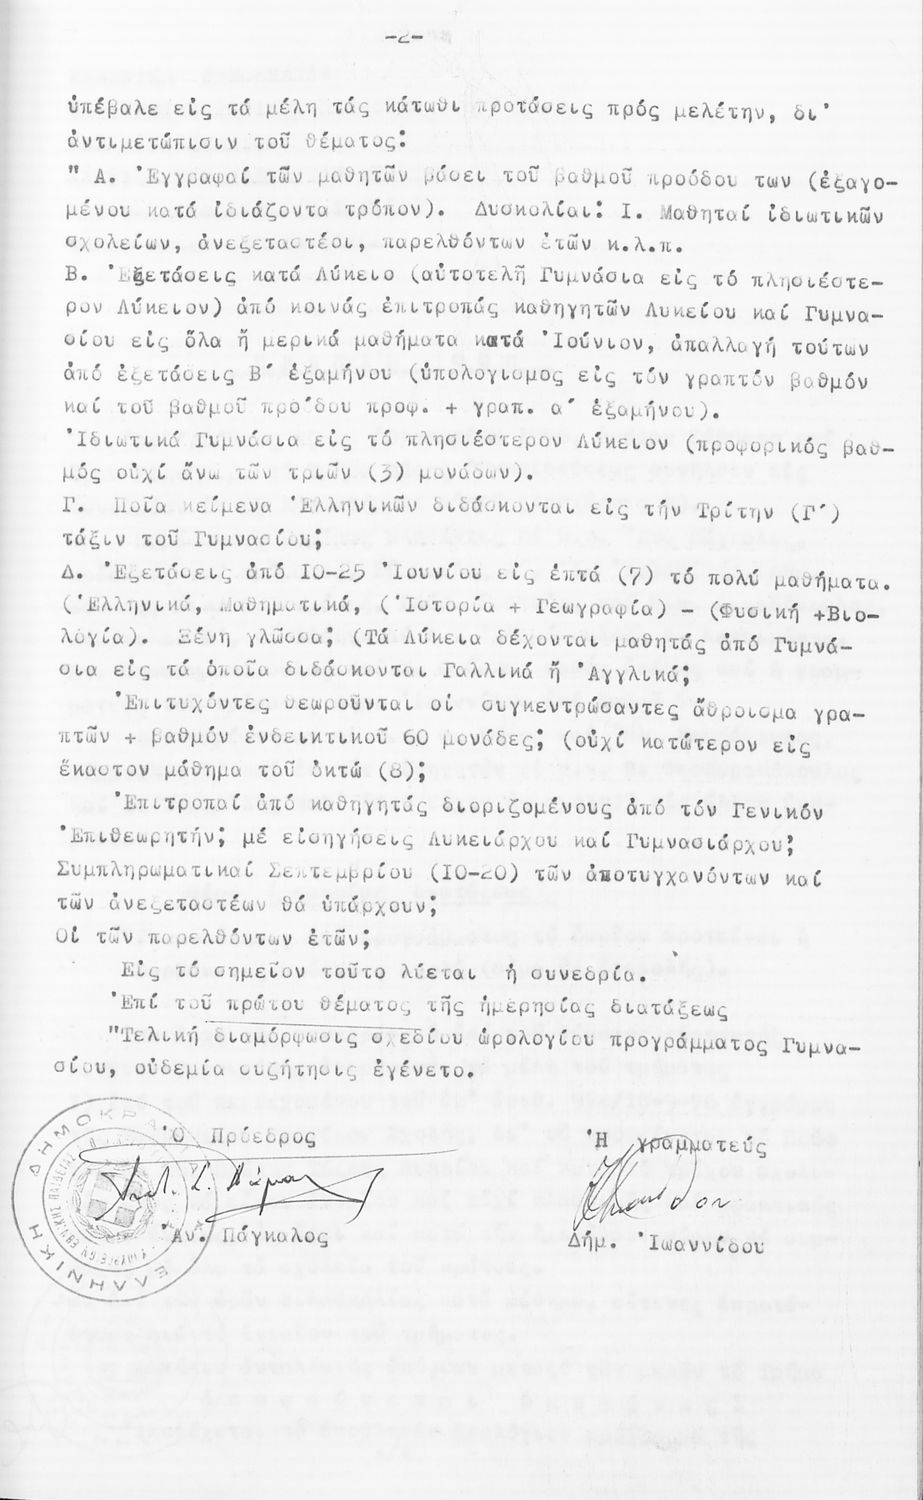 -2-
ὑπέβαλε εἰς τά μέλη τάς κάτωθι προτάσεις πρός μελέτην, δι'
ἀντιμετώπισιν τοῦ θέματος:
" Α. Ἐγγραφαί τῶν μαθητῶν βάσει τοῦ βαθμοῦ προόδου των (ἐξαγο-
μένου κατά ἰδιάζοντα τρόπον). Δυσκολίαι: Ι. Μαθηταί ἰδιωτικῶν
σχολείων, ἀνεξεταστέοι, παρελθόντων ἐτῶν κ.λ.π.
Β. Ἐξετάσεις κατά Λύκειο (αὐτοτελῆ Γυμνάσια εἰς τό πλησιέστε-
ρον Λύκειον) ἀπό κοινάς ἐπιτροπάς καθηγητῶν Λυκείου καί Γυμνα-
σίου εἰς ὅλα ἤ μερικά μαθήματα κατά Ἰούνιον, ἀπαλλαγή τούτων
ἀπό ἐξετάσεις Β´ ἑξαμήνου (ὑπολογισμος εἰς τόν γραπτόν βαθμόν
καί τοῦ βαθμοῦ προ´δου προφ. + γραπ. α´ ἑξαμήνου).
Ἰδιωτικά Γυμνάσια εἰς τό πλησιέστερον Λύκειον (προφορικός βαθ-
μός οὐχί ἄνω τῶν τριῶν (3) μονάδων).
Γ. Ποῖα κείμενα Ἑλληνικῶν διδάσκονται εἰς τήν Τρίτην (Γ´)
τάξιν τοῦ Γυμνασίου;
Δ. Ἐξετάσεις ἀπό 10-25 Ἰουνίου εἰς ἑπτά (7) τό πολύ μαθήματα.
(Ἑλληνικά, Μαθηματικά, (Ἱστορία + Γεωγραφία) - (Φυσική +Βιο-
λογία). Ξένη γλῶσσα; (Τά Λύκεια δέχονται μαθητάς ἀπό Γυμνά-
σια εἰς τά ὁποῖα διδάσκονται Γαλλικά ἤ Ἀγγλικά;
Ἐπιτυχόντες θεωροῦνται οἱ συγκεντρώσαντες ἄθροισμα γρα-
πτῶν + βαθμόν ἐνδεικτικοῦ 60 μονάδες; (οὐχί κατώτερον εἰς
ἕκαστον μάθημα τοῦ ὀκτώ (8);
Ἐπιτροπαί ἀπό καθηγητάς διοριζομένους ἀπό τόν Γενικόν
Ἐπιθεωρητήν; μέ εἰσηγήσεις Λυκειάρχου καί Γυμνασιάρχου;
Συμπληρωματικαί Σεπτεμβρίου (10-20) τῶν ἀποτυγχανόντων καί
τῶν ἀνεξεταστέων θά ὑπάρχουν;
Οἱ τῶν παρελθόντων ἐτῶν;
Εἰς τό σημεῖον τοῦτο λύεται ἡ συνεδρία.
Ἐπί τοῦ πρώτου θέματος τῆς ἡμερησίας διατάξεως
"Τελική διαμόρφωσις σχεδίου ὡρολογίου προγράμματος Γυμνα-
σίου, οὐδεμία συζήτησις ἐγένετο.
Ὁ Πρόεδρος
Ἡ γραμματεύς
Αν. Πάγκαλος
Δήμ. Ἰωαννίδου
ΕΛΛΗΝΙΚΗ ΔΗΜΟΚΡΑΤΙΑ